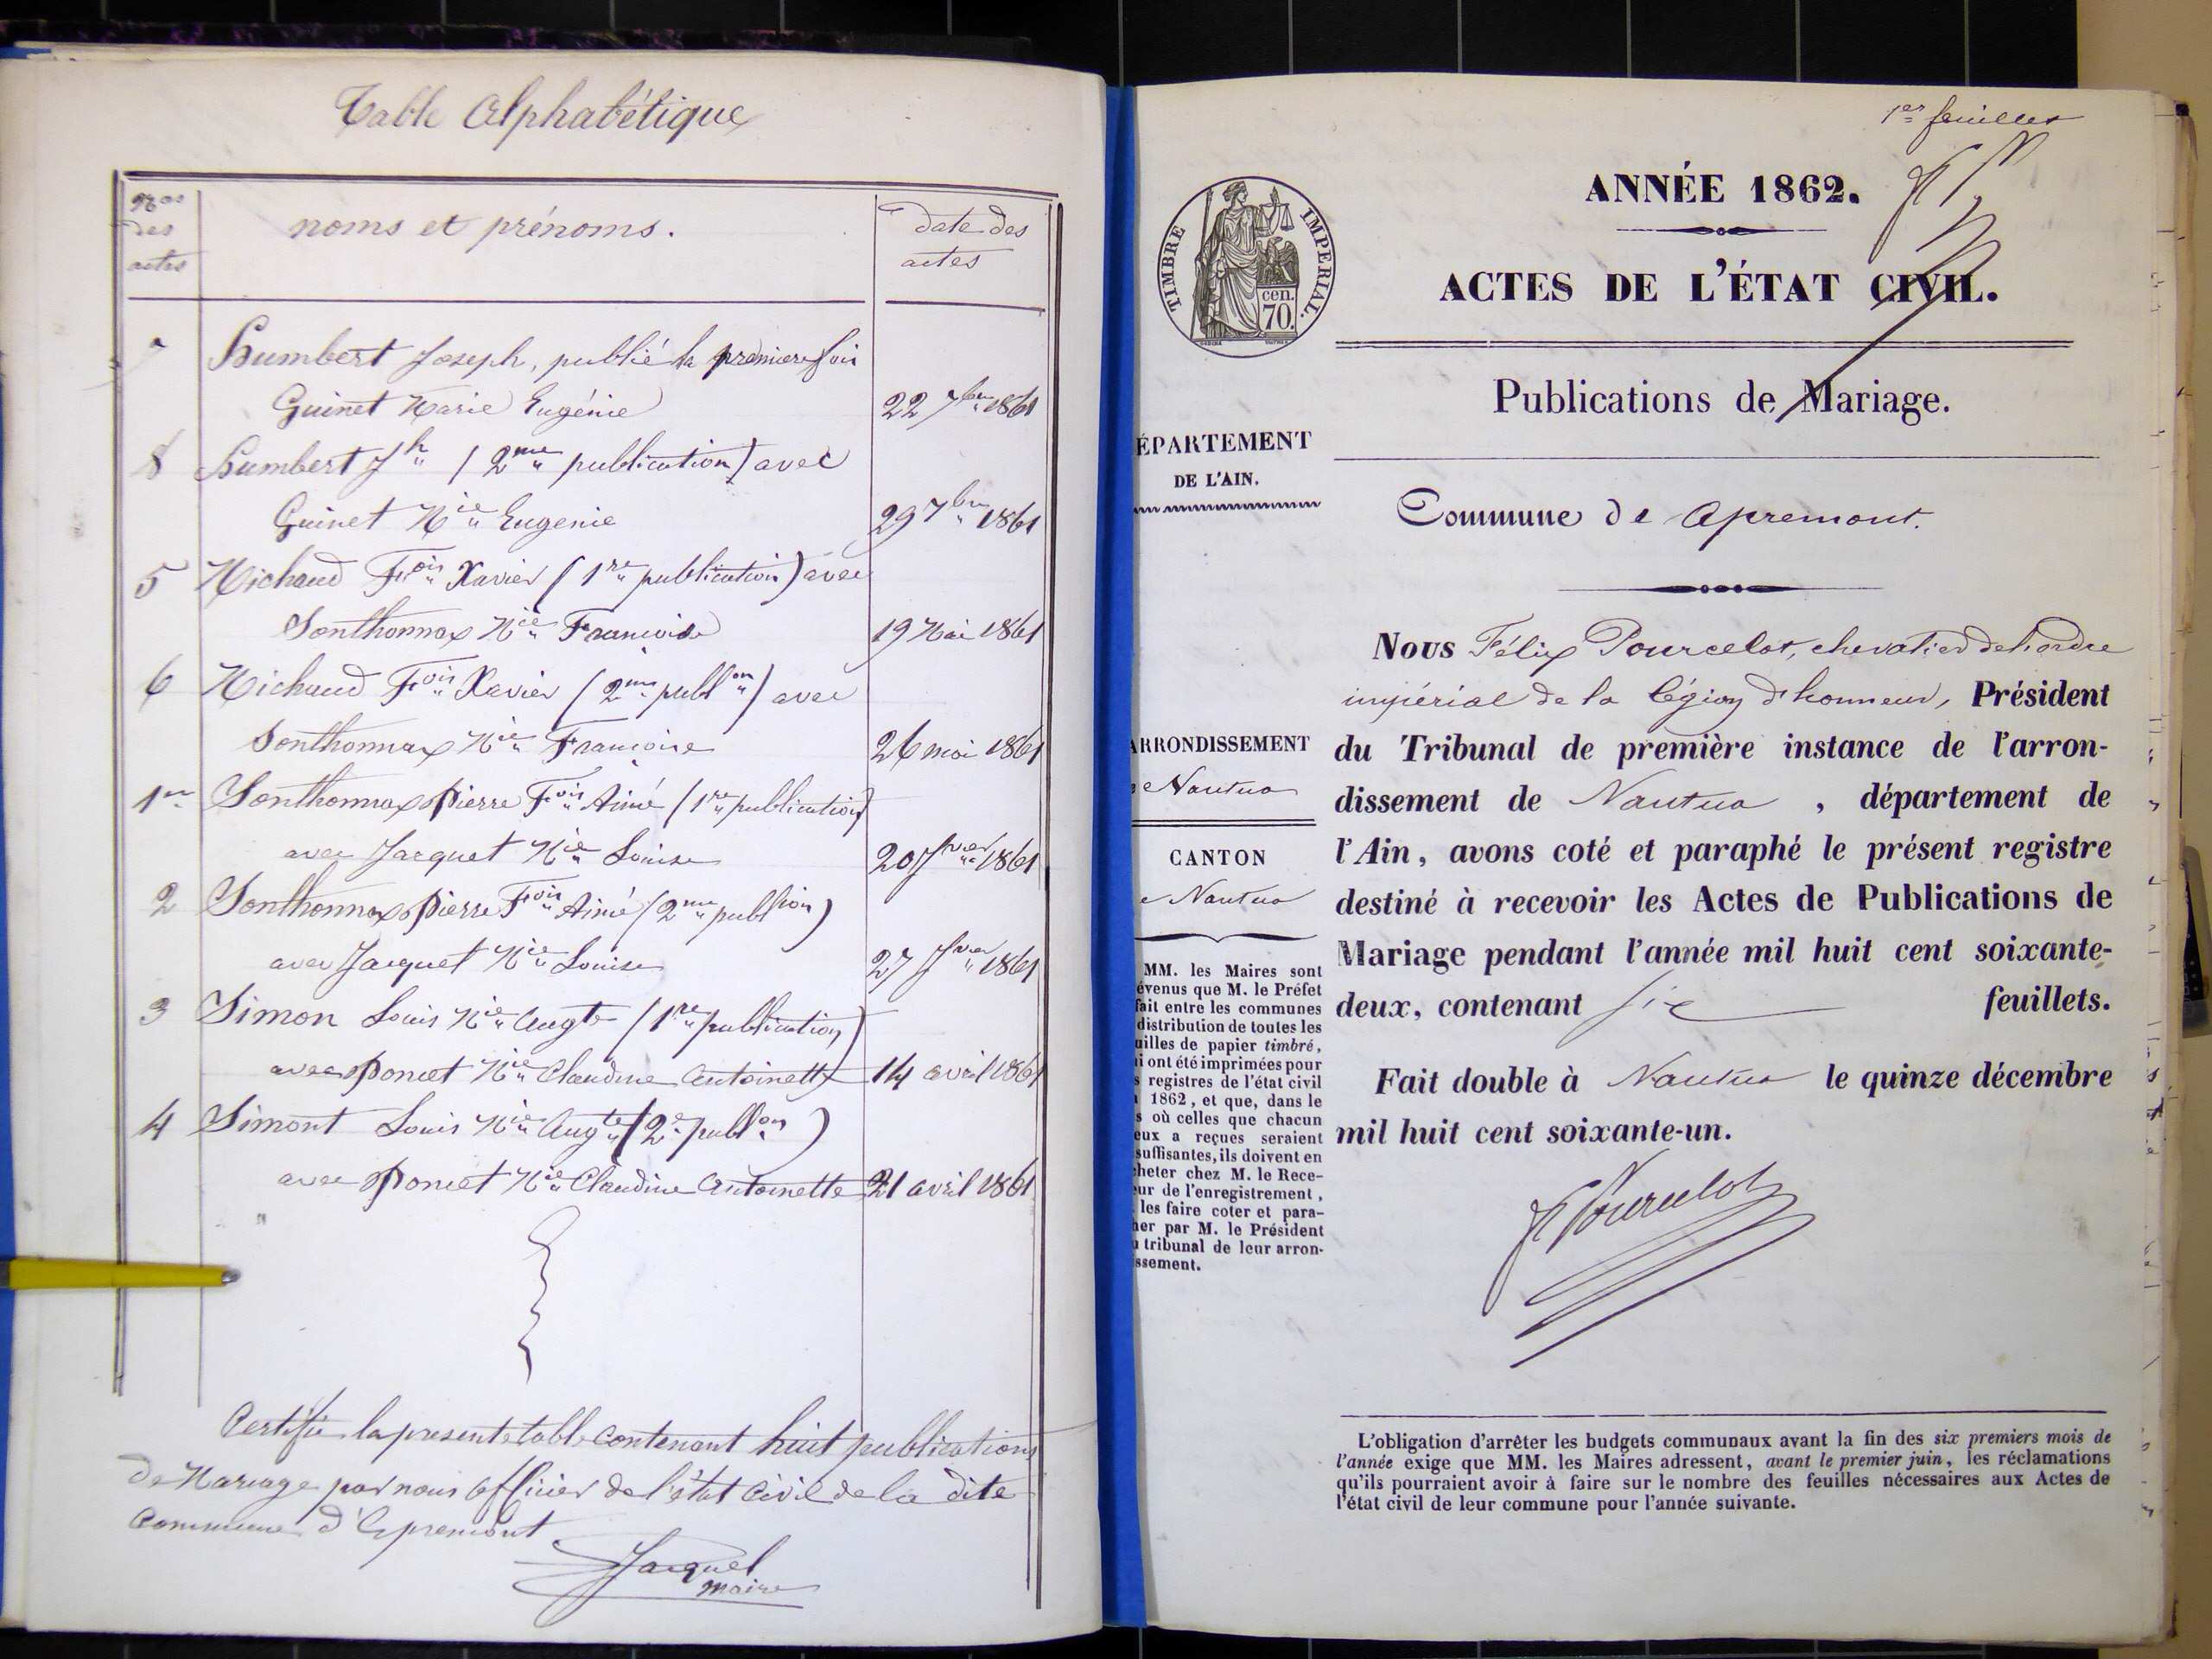 Table Alphabétique
Nos
des
actes
noms et prénoms.
date des
actes
7 Humbert Joseph, publié la premiere fois
Guinet Marie Eugénie 22 7bre 1861
8 Humbert Jh (2me publication) avec
Guinet Mie Eugenie 29 7bre 1861
5 Michaud Fois Xavier (1re publication) avec
Sonthonnax Mie Françoise 19 Mai 1861
6 Michaud Fois Xavier (2me publon) avec
Sonthonnax Mie Françoise 26 mai 1861
1er Sonthonnax Pierre Fois Aimé (1re publication)
avec Jacquet Mie Louise 20 Jvier 1861
2 Sonthonnax Pierre Fois Aimé (2me publion)
avec Jacquet Mie Louise 27 Jvier 1861
3 Simon Louis Mie Augte (1re publication)
avec Poncet Mie Claudine Antoinette 14 avril 1861
4 Simont Louis Mie Augte (2e publon)
avec Poncet Mie Claudine Antoinette 21 avril 1861
Certifié la presente table contenant huit publications
de Mariage par nous officier de l'état Civil de la dite
Commune d'Apremont
Jacquet
maire
1er feuillet
ANNÉE 1862.
TIMBRE IMPERIAL.
cen.
70.
ACTES DE L'ÉTAT CIVIL.
Publications de Mariage.
ÉPARTEMENT
DE L'AIN.
Commune de Apremont.
ARRONDISSEMENT
e Nantua
CANTON
e Nantua
MM. les Maires sont
évenus que M. le Préfet
fait entre les communes
distribution de toutes les
uilles de papier timbré,
i ont été imprimées pour
s registres de l'état civil
1862, et que, dans le
s où celles que chacun
eux a reçues seraient
suffisantes, ils doivent en
heter chez M. le Rece-
eur de l'enregistrement,
les faire coter et para-
her par M. le Président
u tribunal de leur arron-
ssement.
Nous Félix Pourcelot, chevalier de l'ordre
impérial de la légion d'honneur, Président
du Tribunal de première instance de l'arron-
dissement de Nantua, département de
l'Ain, avons coté et paraphé le présent registre
destiné à recevoir les Actes de Publications de
Mariage pendant l'année mil huit cent soixante-
deux, contenant six feuillets.
Fait double à Nantua le quinze décembre
mil huit cent soixante-un.
F Pourcelot
L'obligation d'arrêter les budgets communaux avant la fin des six premiers mois de
l'année exige que MM. les Maires adressent, avant le premier juin, les réclamations
qu'ils pourraient avoir à faire sur le nombre des feuilles nécessaires aux Actes de
l'état civil de leur commune pour l'année suivante.